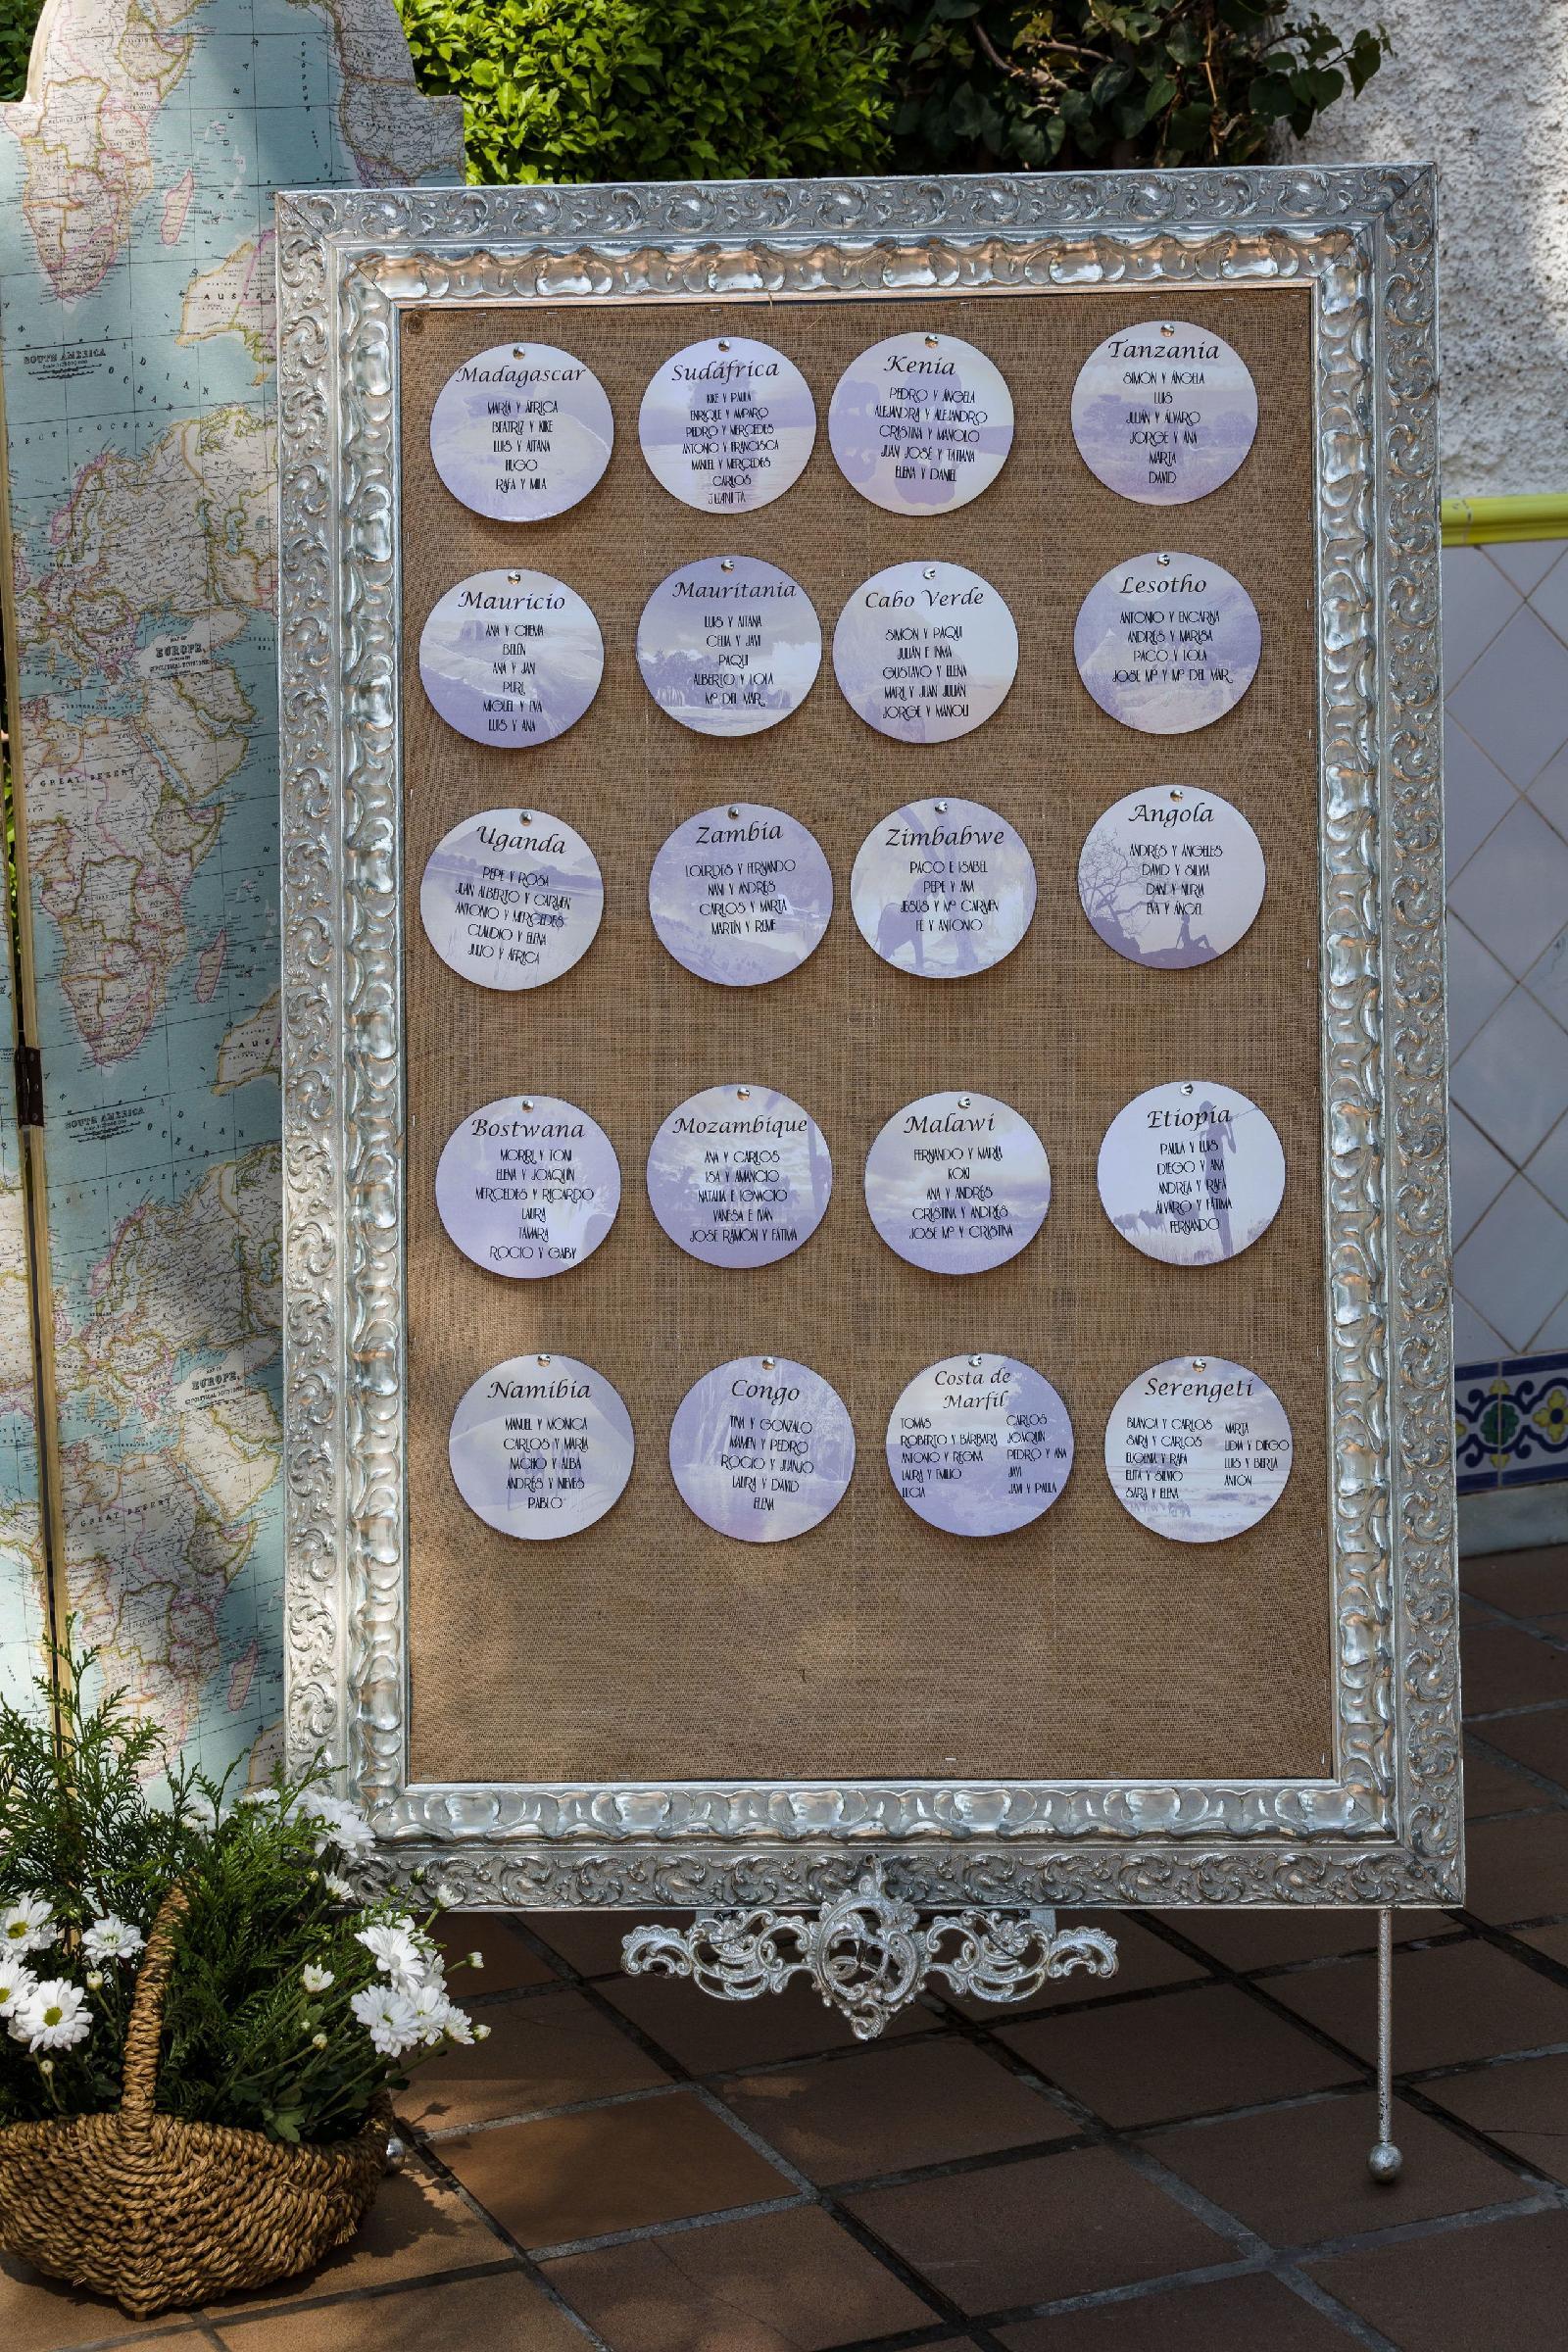 Madagascar
MARÍA Y ÁFRICA
BEATRIZ Y KIKE
LUIS Y AITANA
HUGO
RAFA Y MILA
Sudáfrica
KIKE Y PAULA
ENRIQUE Y AMPARO
PEDRO Y MERCEDES
ANTONIO Y FRANCISCA
MANUEL Y MERCEDES
CARLOS
JUANITA
Kenia
PEDRO Y ÁNGELA
ALEJANDRA Y ALEJANDRO
CRISTINA Y MANOLO
JUAN JOSÉ Y TATIANA
ELENA Y DANIEL
Tanzania
SIMON Y ÁNGELA
LUIS
JULIÁN Y ÁLVARO
JORGE Y ANA
MARTA
DAVID
Mauricio
ANA Y CHEMA
BELÉN
ANA Y JAVI
PURI
MIGUEL Y EVA
LUIS Y ANA
Mauritania
LUIS Y AITANA
CELIA Y JAVI
PAQUI
ALBERTO Y LOLA
Mª DEL MAR
Cabo Verde
SIMÓN Y PAQUI
JULIÁN E INMA
GUSTAVO Y ELENA
MARI Y JUAN JULIÁN
JORGE Y MANOLI
Lesotho
ANTONIO Y ENCARNA
ANDRÉS Y MARISA
PACO Y LOLA
JOSE Mª Y Mª DEL MAR
Uganda
PEPE Y ROSA
JUAN ALBERTO Y CARMEN
ANTONIO Y MERCEDES
CLAUDIO Y ELENA
JULIO Y ÁFRICA
Zambia
LOURDES Y FERNANDO
NANI Y ANDRÉS
CARLOS Y MARTA
MARTÍN Y REME
Zimbabwe
PACO E ISABEL
PEPE Y ANA
JESÚS Y Mª CARMEN
FE Y ANTONIO
Angola
ANDRÉS Y ÁNGELES
DAVID Y SILVIA
DANI Y NURIA
EVA Y ÁNGEL
Bostwana
MORRI Y TONI
ELENA Y JOAQUÍN
MERCEDES Y RICARDO
LAURA
TAMARA
ROCIO Y GABY
Mozambique
ANA Y CARLOS
ISA Y AMANCIO
NATALIA E IGNACIO
VANESA E IVAN
JOSE RAMÓN Y FÁTIMA
Malawi
FERNANDO Y MARÍA
KOKI
ANA Y ANDRÉS
CRISTINA Y ANDRÉS
JOSE Mª Y CRISTINA
Etiopia
PAULA Y LUIS
DIEGO Y ANA
ANDREA Y RAFA
ÁLVARO Y FÁTIMA
FERNANDO
Namibia
MANUEL Y MÓNICA
CARLOS Y MARÍA
NACHO Y ALBA
ANDRÉS Y NIEVES
PABLO
Congo
TINA Y GONZALO
MAMEN Y PEDRO
ROCIO Y JUANJO
LAURA Y DAVID
ELENA
Costa de
Marfil
TOMÁS
ROBERTO Y BÁRBARA
ANTONIO Y REGINA
LAURA Y EMILIO
LUCIA
CARLOS
JOAQUÍN
PEDRO Y ANA
JAVI
JAVI Y PAULA
Serengeti
BLANCA Y CARLOS
SARA Y CARLOS
EUGENIA Y RAFA
ELITA Y SILVIO
SARA Y ELENA
MARTA
LIDIA Y DIEGO
LUIS Y BERTA
ANTON
SOUTH AMERICA
EUROPE,
GREAT DESERT
SOUTH AMERICA
EUROPE,
GREAT DESERT